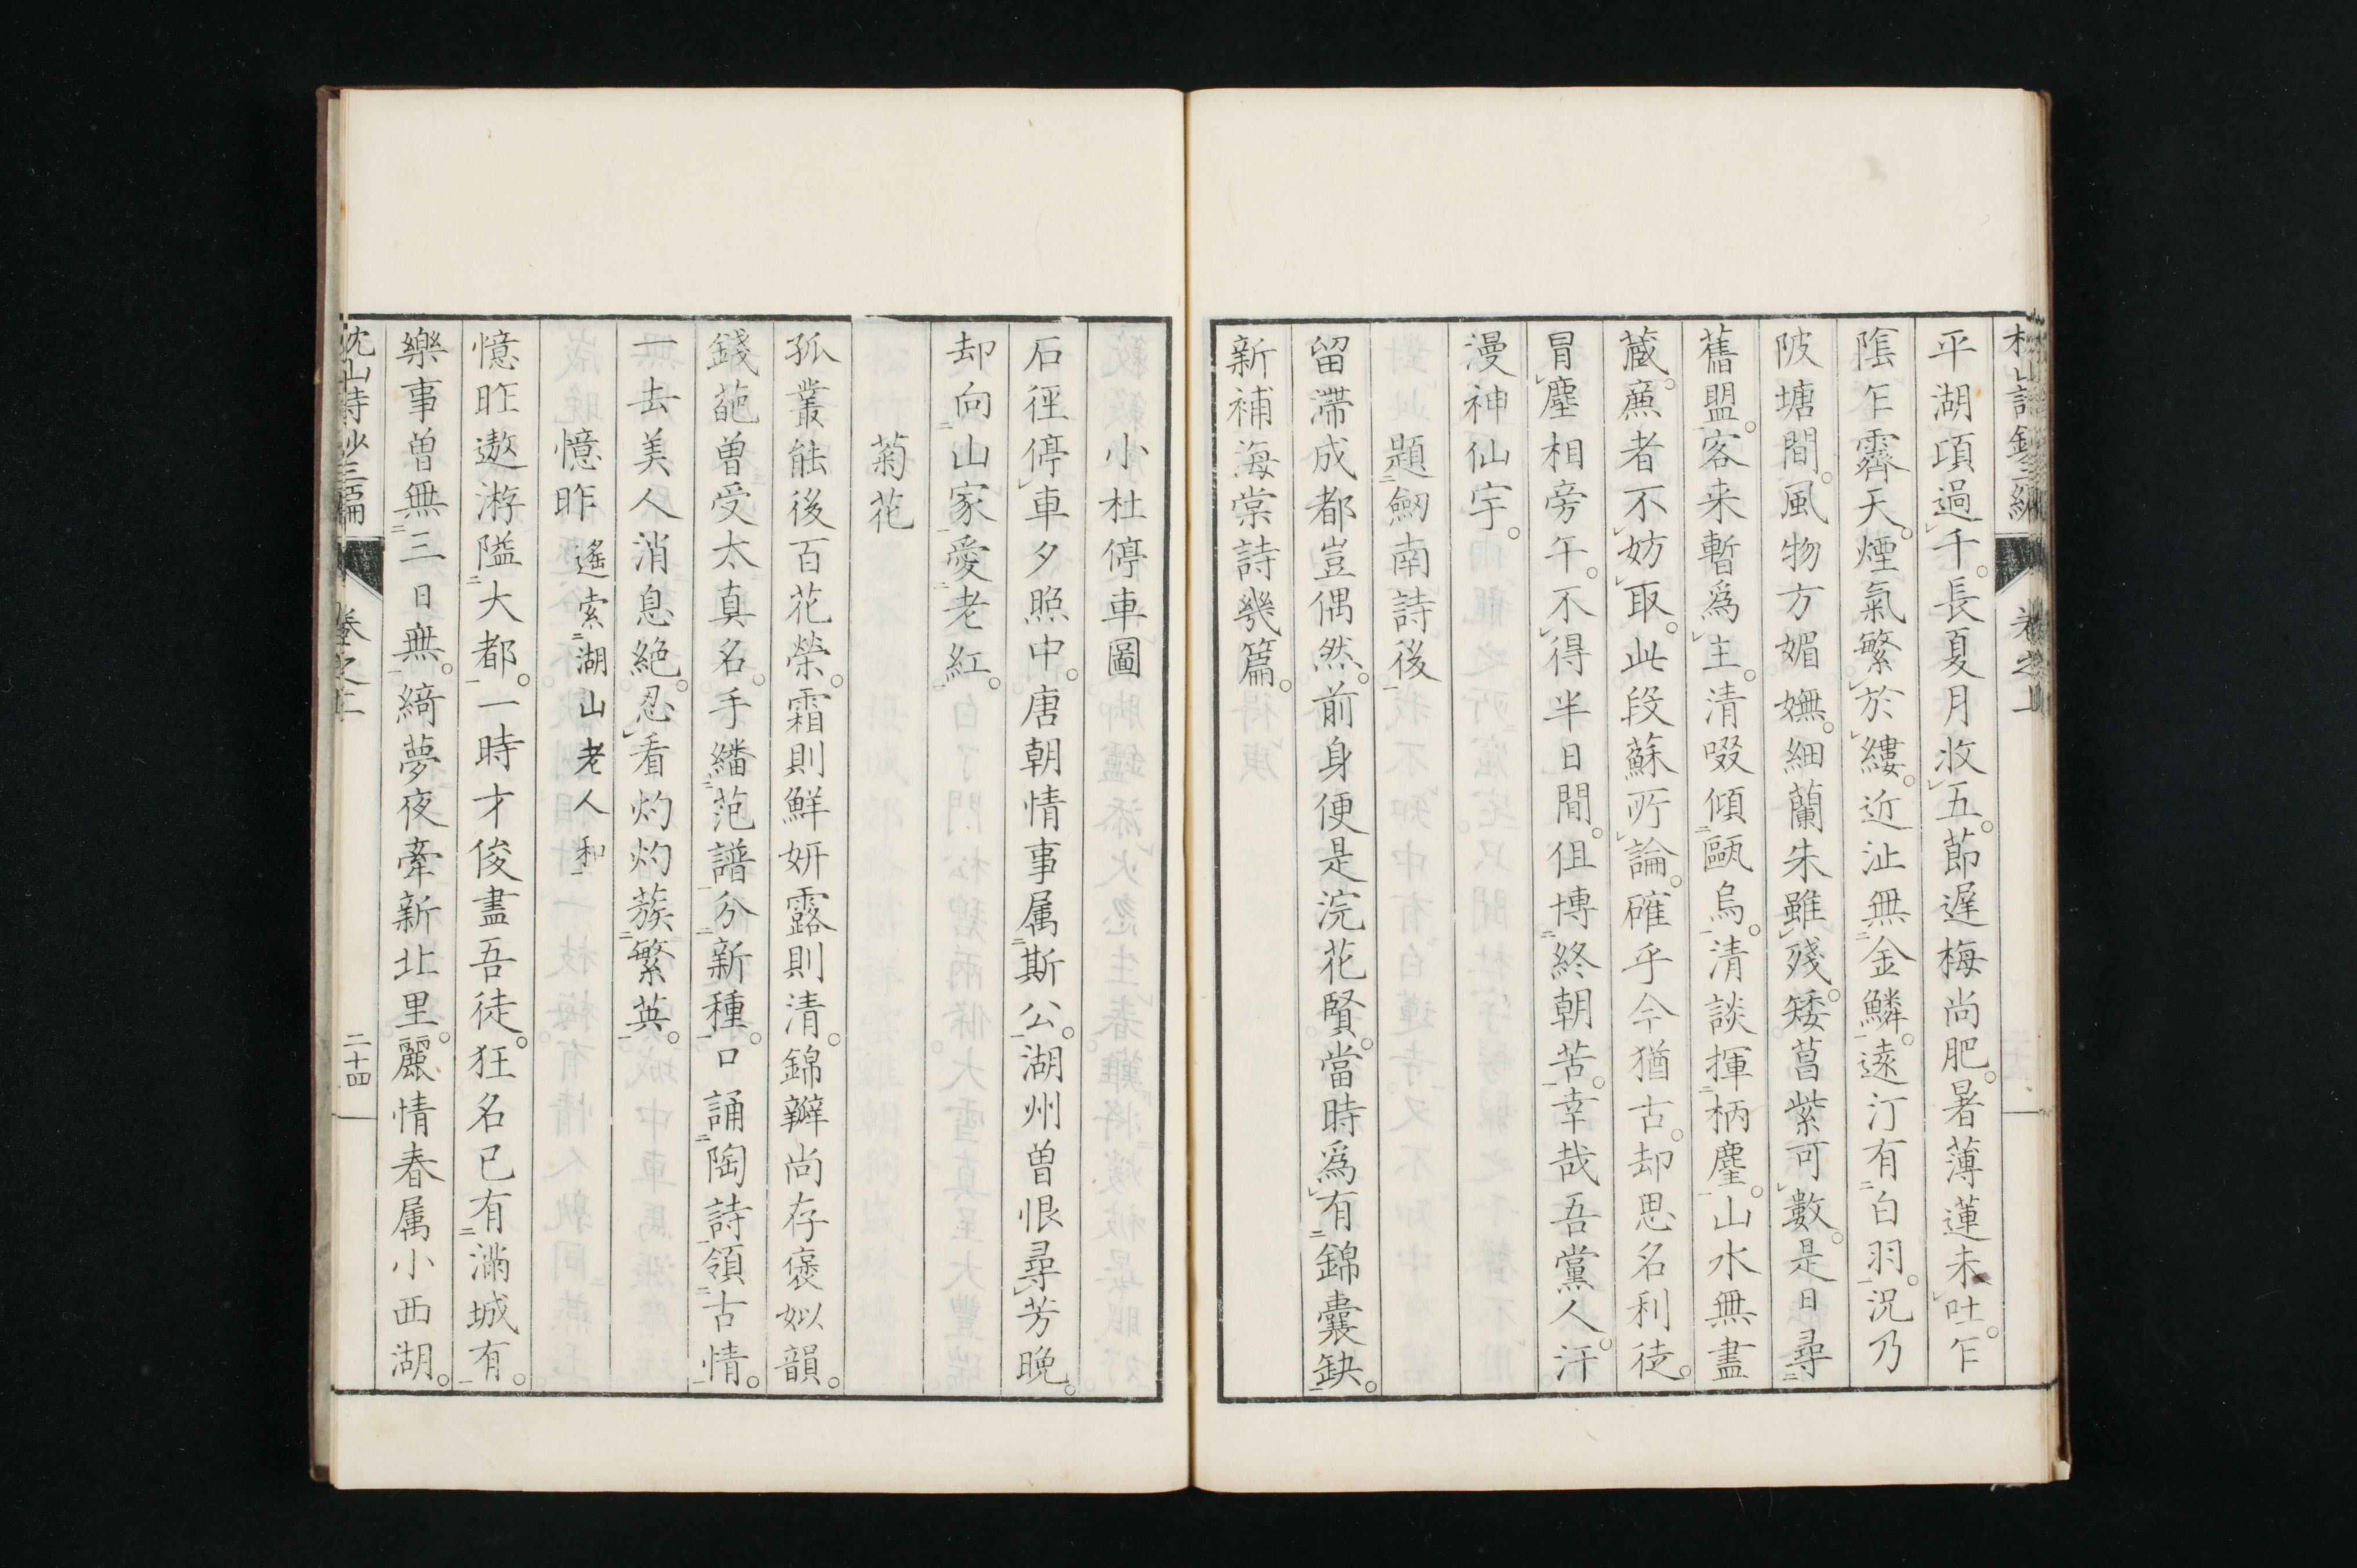 平湖項過千。長夏月收五。節遲梅尚肥。暑薄蓮未吐。乍
陰乍霽天。煙氣繁於縷。近沚無金鱗。遠汀有白羽。況乃
陂塘間。風物方媚嫵。細蘭朱雖殘。矮菖紫可數。是日尋
舊盟。客来暫爲主。清啜傾甌烏。清談揮柄麈。山水無盡
蔵。廉者不妨取。此段蘇所論。確乎今猶古。却思名利徒。
冒塵相旁午。不得半日閒。但博終朝苦。幸哉吾黨人。汗
漫神仙宇。
題劔南詩後
留滯成都豈偶然。前身便是浣花賢。當時爲有錦囊缺。
新補海棠詩幾篇。
小杜停車圖
石徑停車夕照中。唐朝情事属斯公。湖州曽恨尋芳晚。
却向山家愛老紅。
菊花
孤叢能後百花榮。霜則鮮妍露則清。錦瓣尚存褒姒韻。
錢葩曽受太真名。手繙范譜分新種。口誦陶詩領古情。
一去美人消息絶。忍看灼灼蔟繁英。
憶昨 遙索湖山老人和
憶昨遨游隘大都。一時才俊盡吾徒。狂名已有滿城有。
樂事曽無三日無。綺夢夜牽新北里。麗情春属小西湖。
枕山詩鈔三編 卷之上 二十四